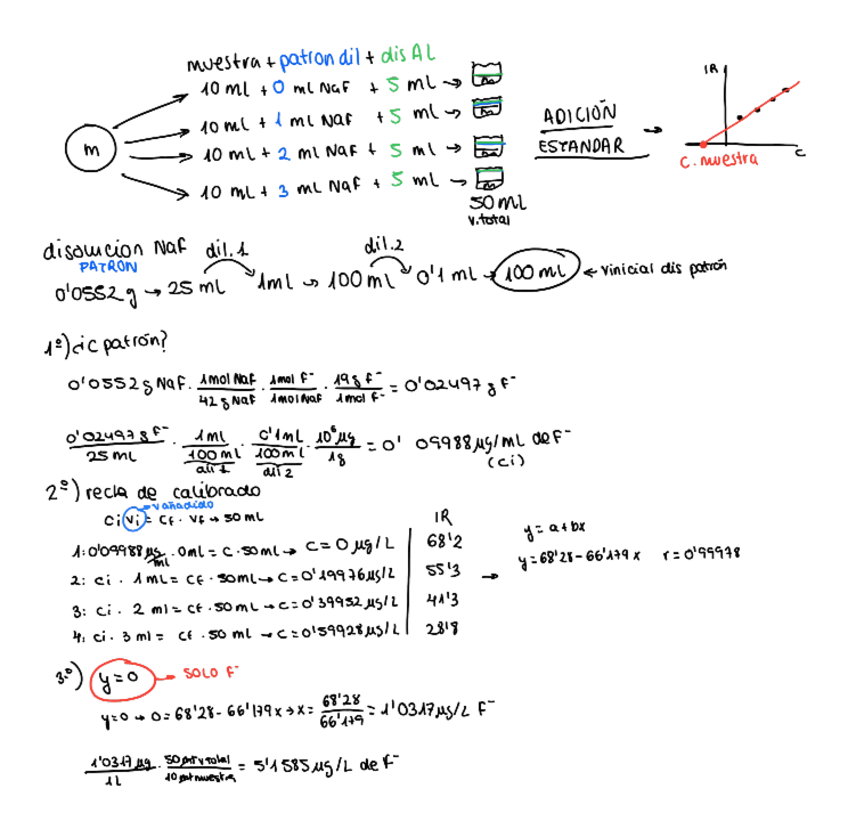 muestra + patron dil + dis AL
10 ml + 0 ml NaF + 5 ml →
10 ml + 1 ml NaF + 5 ml →
10 ml + 2 ml NaF + 5 ml →
10 ml + 3 ml NaF + 5 ml →
m
50 ml
v.total
ADICIÓN
ESTANDAR →
IR
C
C. muestra
disolucion NaF dil.1 dil.2
PATRON
0'0552 g → 25 ml 1ml → 100 ml 0'1 ml → 100 ml ← Vinicial dis patrón
1º) ¿c patrón?
0'0552 g NaF · 1mol NaF / 42 g NaF · 1mol F⁻ / 1mol NaF · 19 g F⁻ / 1mol F⁻ = 0'02497 g F⁻
0'02497 g F⁻ / 25 ml · 1ml / 100 ml · 0'1ml / 100 ml · 10⁶ µg / 1g = 0' 09988 µg/mL de F⁻
dil 1 dil 2 (ci)
2º) recta de calibrado
vañadido
Ci Vi = Cf · Vf → 50 ml
IR
1: 0'09988 µg/ml · 0ml = C · 50ml → C = 0 µg/L 68'2
2: ci · 1ml = cf · 50ml → C = 0'19976 µg/L 55'3
3: ci · 2 ml = cf · 50 ml → C = 0'39952 µg/L 41'3
4: ci · 3 ml = cf · 50 ml → C = 0'59928 µg/L 28'8
→ y = a + bx
y = 68'28 - 66'179 x r = 0'99978
3.º) y = 0 → SOLO F⁻
y = 0 → 0 = 68'28 - 66'179 x → x = 68'28 / 66'179 = 1'0317 µg/L F⁻
1'0317 µg / 1L · 50 ml v total / 10 ml muestra = 5'1585 µg/L de F⁻